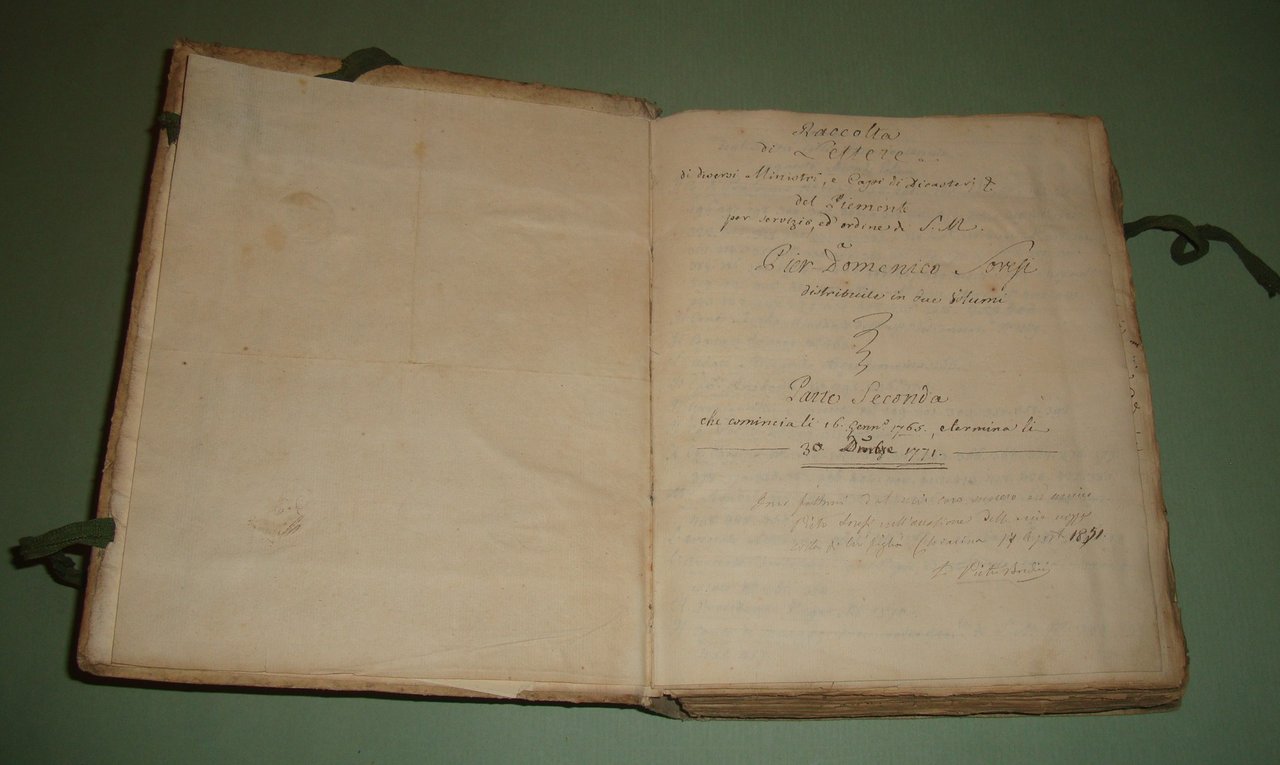 Raccolta
di Lettere
di diversi Ministri, e Capi di Dicasterj &.
del Piemonte
per servizio, ed ordine di S. M.
Pier Domenico Soresi
distribuite in due Volumi
Parte Seconda
che comincia li 16. Genn.º 1765., e termina li
30 1771.
dal mio caro suocero ed amico
Soresi nell'occasione delle mie nozze
figlia 1851.
Pietro